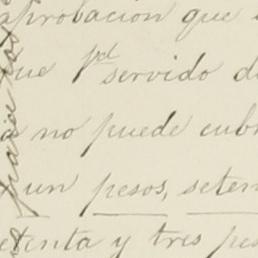 aprobacion que
que pd servido d
a no puede cub
un pesos, seten
etenta y tres pes